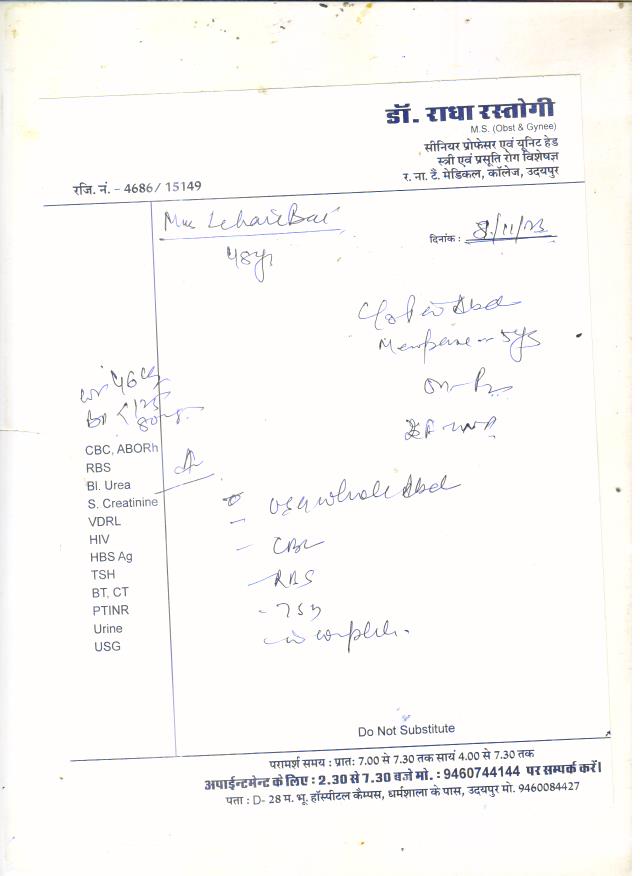 डॉ. राधा रस्तोगी
M.S. (Obst & Gynee)
सीनियर प्रोफेसर एवं यूनिट हेड
स्त्री एवं प्रसूति रोग विशेषज्ञ
र. ना. टै. मेडिकल, कॉलेज, उदयपुर
रजि. नं. - 4686 / 15149
दिनांक : 8/11/23
48y
Abd
46
CBC, ABORh
RBS
Bl. Urea
S. Creatinine
VDRL
HIV
HBS Ag
TSH
BT, CT
PTINR
Urine
USG
USG whole Abd
- CBC
- RBS
- TSH
Do Not Substitute
परामर्श समय : प्रातः 7.00 से 7.30 तक सायं 4.00 से 7.30 तक
अपाईन्टमेन्ट के लिए : 2.30 से 7.30 बजे मो. : 9460744144 पर सम्पर्क करें।
पता : D- 28 म. भू. हॉस्पीटल कैम्पस, धर्मशाला के पास, उदयपुर मो. 9460084427